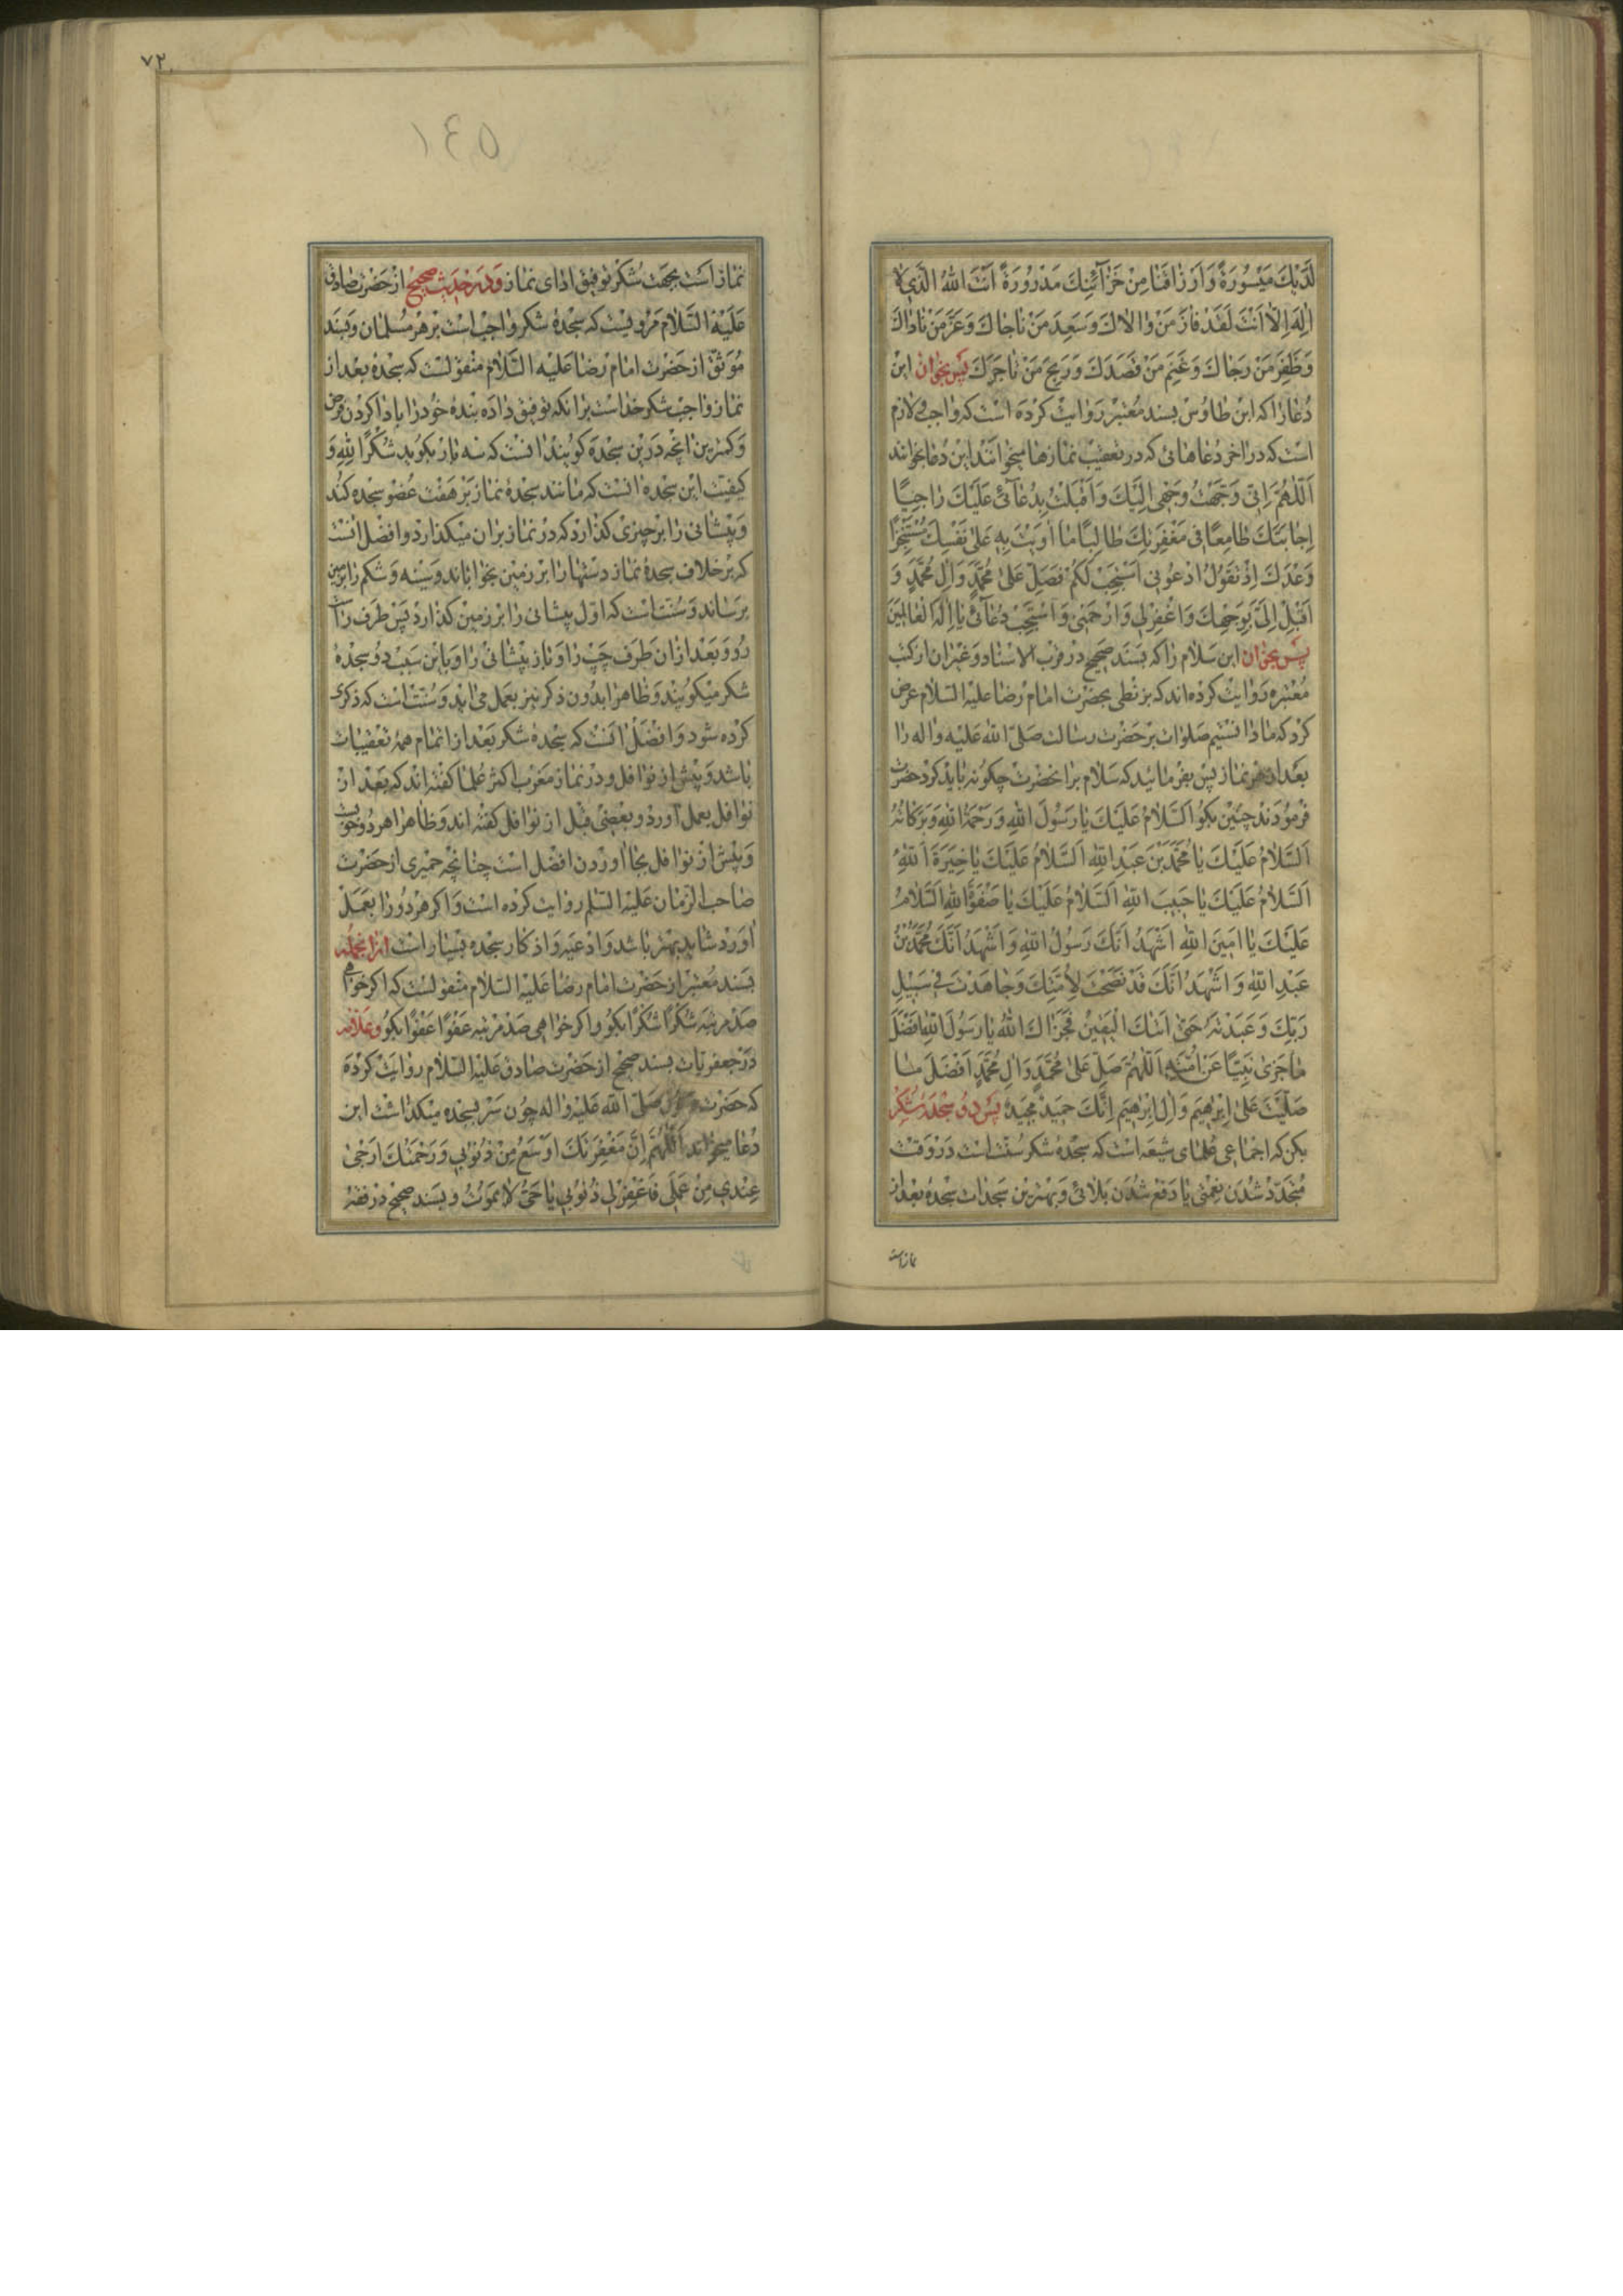 لَدَيْكَ مَيْسُورَةً وَاَرْزاقَنا مِنْ خَزآئِنِكَ مَدْرُورَةً اَنْتَ اللهُ الَّذي لا
اِلهَ اِلّا اَنْتَ لَقَدْ فازَ مَنْ والاكَ وَسَعِدَ مَنْ ناجاكَ وَعَزَّ مَنْ ناداكَ
وَظَفِرَ مَنْ رَجاكَ وَغَنِمَ مَنْ قَصَدَكَ وَرَبِحَ مَنْ تاجَرَكَ پس بخوان این
دعا را که ابن طاوس بسند معتبر روایت کرده است که واجب و لازم
است که در اخر دعاهائی که در تعقیب نمازها میخوانند این دعا بخوانند
اَللّهُمَّ اِنّي وَجَّهْتُ وَجْهي اِلَيْكَ وَاَقْبَلْتُ بِدُعآئي عَلَيْكَ راجِيًا
اِجابَتَكَ طامِعًا في مَغْفِرَتِكَ طالِبًا ما اَوَيْتَ بِهِ عَلى نَفْسِكَ مُسْتَنْجِزًا
وَعْدَكَ اِذْ تَقُولُ ادْعُوني اَسْتَجِبْ لَكُمْ فَصَلِّ عَلى مُحَمَّدٍ وَالِ مُحَمَّدٍ وَ
اَقْبِلْ اِلَيَّ بِوَجْهِكَ وَاغْفِرْ لي وَارْحَمْني وَاسْتَجِبْ دُعآئي يا اِلهَ الْعالَمينَ
پس بخوان این سلام را که بسند صحیح در قرب الاسناد و غیر ان از کتب
معتبره روایت کرده‌اند که بزنطی بحضرت امام رضا علیه السلام عرض
کرد که ما دانستیم صلوات بر حضرت رسالت صلی الله علیه واله را
بعد از هر نماز پس بفرمائید که سلام بر انحضرت چگونه باید کرد حضرت
فرمودند چنین بکو اَلسَّلامُ عَلَيْكَ يا رَسُولَ اللهِ وَرَحْمَةُ اللهِ وَبَرَكاتُهُ
اَلسَّلامُ عَلَيْكَ يا مُحَمَّدَ بْنَ عَبْدِ اللهِ اَلسَّلامُ عَلَيْكَ يا خِيَرَةَ اللهِ
اَلسَّلامُ عَلَيْكَ يا حَبيبَ اللهِ اَلسَّلامُ عَلَيْكَ يا صَفْوَةَ اللهِ اَلسَّلامُ
عَلَيْكَ يا اَمينَ اللهِ اَشْهَدُ اَنَّكَ رَسُولُ اللهِ وَاَشْهَدُ اَنَّكَ مُحَمَّدُ بْنُ
عَبْدِ اللهِ وَاَشْهَدُ اَنَّكَ قَدْ نَصَحْتَ لِاُمَّتِكَ وَجاهَدْتَ في سَبيلِ
رَبِّكَ وَعَبَدْتَهُ حَتّى اَتاكَ الْيَقينُ فَجَزاكَ اللهُ يا رَسُولَ اللهِ اَفْضَلَ
ما جَزى نَبِيًّا عَنْ اُمَّتِهِ اَللّهُمَّ صَلِّ عَلى مُحَمَّدٍ وَالِ مُحَمَّدٍ اَفْضَلَ ما
صَلَّيْتَ عَلى اِبْرهيمَ وَالِ اِبْرهيمَ اِنَّكَ حَميدٌ مَجيدٌ پس دو سجده شکر
بکن که اجماعی علمای شیعه است که سجده شکر سنت است در وقت
متجدد شدن نعمتی یا دفع شدن بلائی و بهترین سجدات سجده بعد از
نماز است
٧٢
١٤٥
نماز است بجهت شکر توفیق ادای نماز و در حدیث صحیح از حضرت صادق
علیه السلام مرویست که سجده شکر واجب است بر هر مسلمان و بسند
موثق از حضرت امام رضا علیه السلام منقولست که سجده بعد از
نماز واجب شکر خداست بر انکه توفیق داده بنده خود را با ادا کردن فرض
و کمترین انچه در این سجده کویند انست که سه بار بکوید شُكْرًا لِلّهِ و
کیفیت این سجده انست که مانند سجده نماز بر هفت عضو سجده کند
و پیشانی را بر چیزی کذارد که در نماز بران میکذارد و افضل انست
که بر خلاف سجده نماز دستها را بر زمین بخواباند و سینه و شکم را بزمین
برساند و سنت است که اول پیشانی را بر زمین کذارد پس طرف راست
رو و بعد ازان طرف چپ را و باز پیشانی را و باین سبب دو سجده
شکر میکویند و ظاهرا بدون ذکر نیز بعمل می اید و سنت است که ذکری
کرده شود و افضل انست که سجده شکر بعد از اتمام همه تعقیبات
باشد و پیش از نوافل و در نماز مغرب اکثر علما کفته اند که بعد از
نوافل بعمل آورد و بعضی قبل از نوافل کفته اند و ظاهرا هر دو خوبست
و پیش از نوافل بجا اوردن افضل است چنانچه حمیری از حضرت
صاحب الزمان علیه السلم روایت کرده است و اکر هر دو را بعمل
اورد شاید بهتر باشد و ادعیه و اذکار سجده بسیار است ازانجمله
بسند معتبر از حضرت امام رضا علیه السلام منقولست که اکر خواهی
صد مرتبه شُكْرًا شُكْرًا بکو و اکر خواهی صد مرتبه عَفْوًا عَفْوًا بکو و علامه
در جعفریات بسند صحیح از حضرت صادق علیه السلام روایت کرده
که حضرت رسول صلی الله علیه واله چون سر بسجده میکذاشت این
دعا میخواند اَللّهُمَّ اِنَّ مَغْفِرَتَكَ اَوْسَعُ مِنْ ذُنُوبي وَرَحْمَتَكَ اَرْجى
عِنْدي مِنْ عَمَلي فَاغْفِرْ لي ذُنُوبي يا حَيُّ لا يَمُوتُ و بسند صحیح در فقه